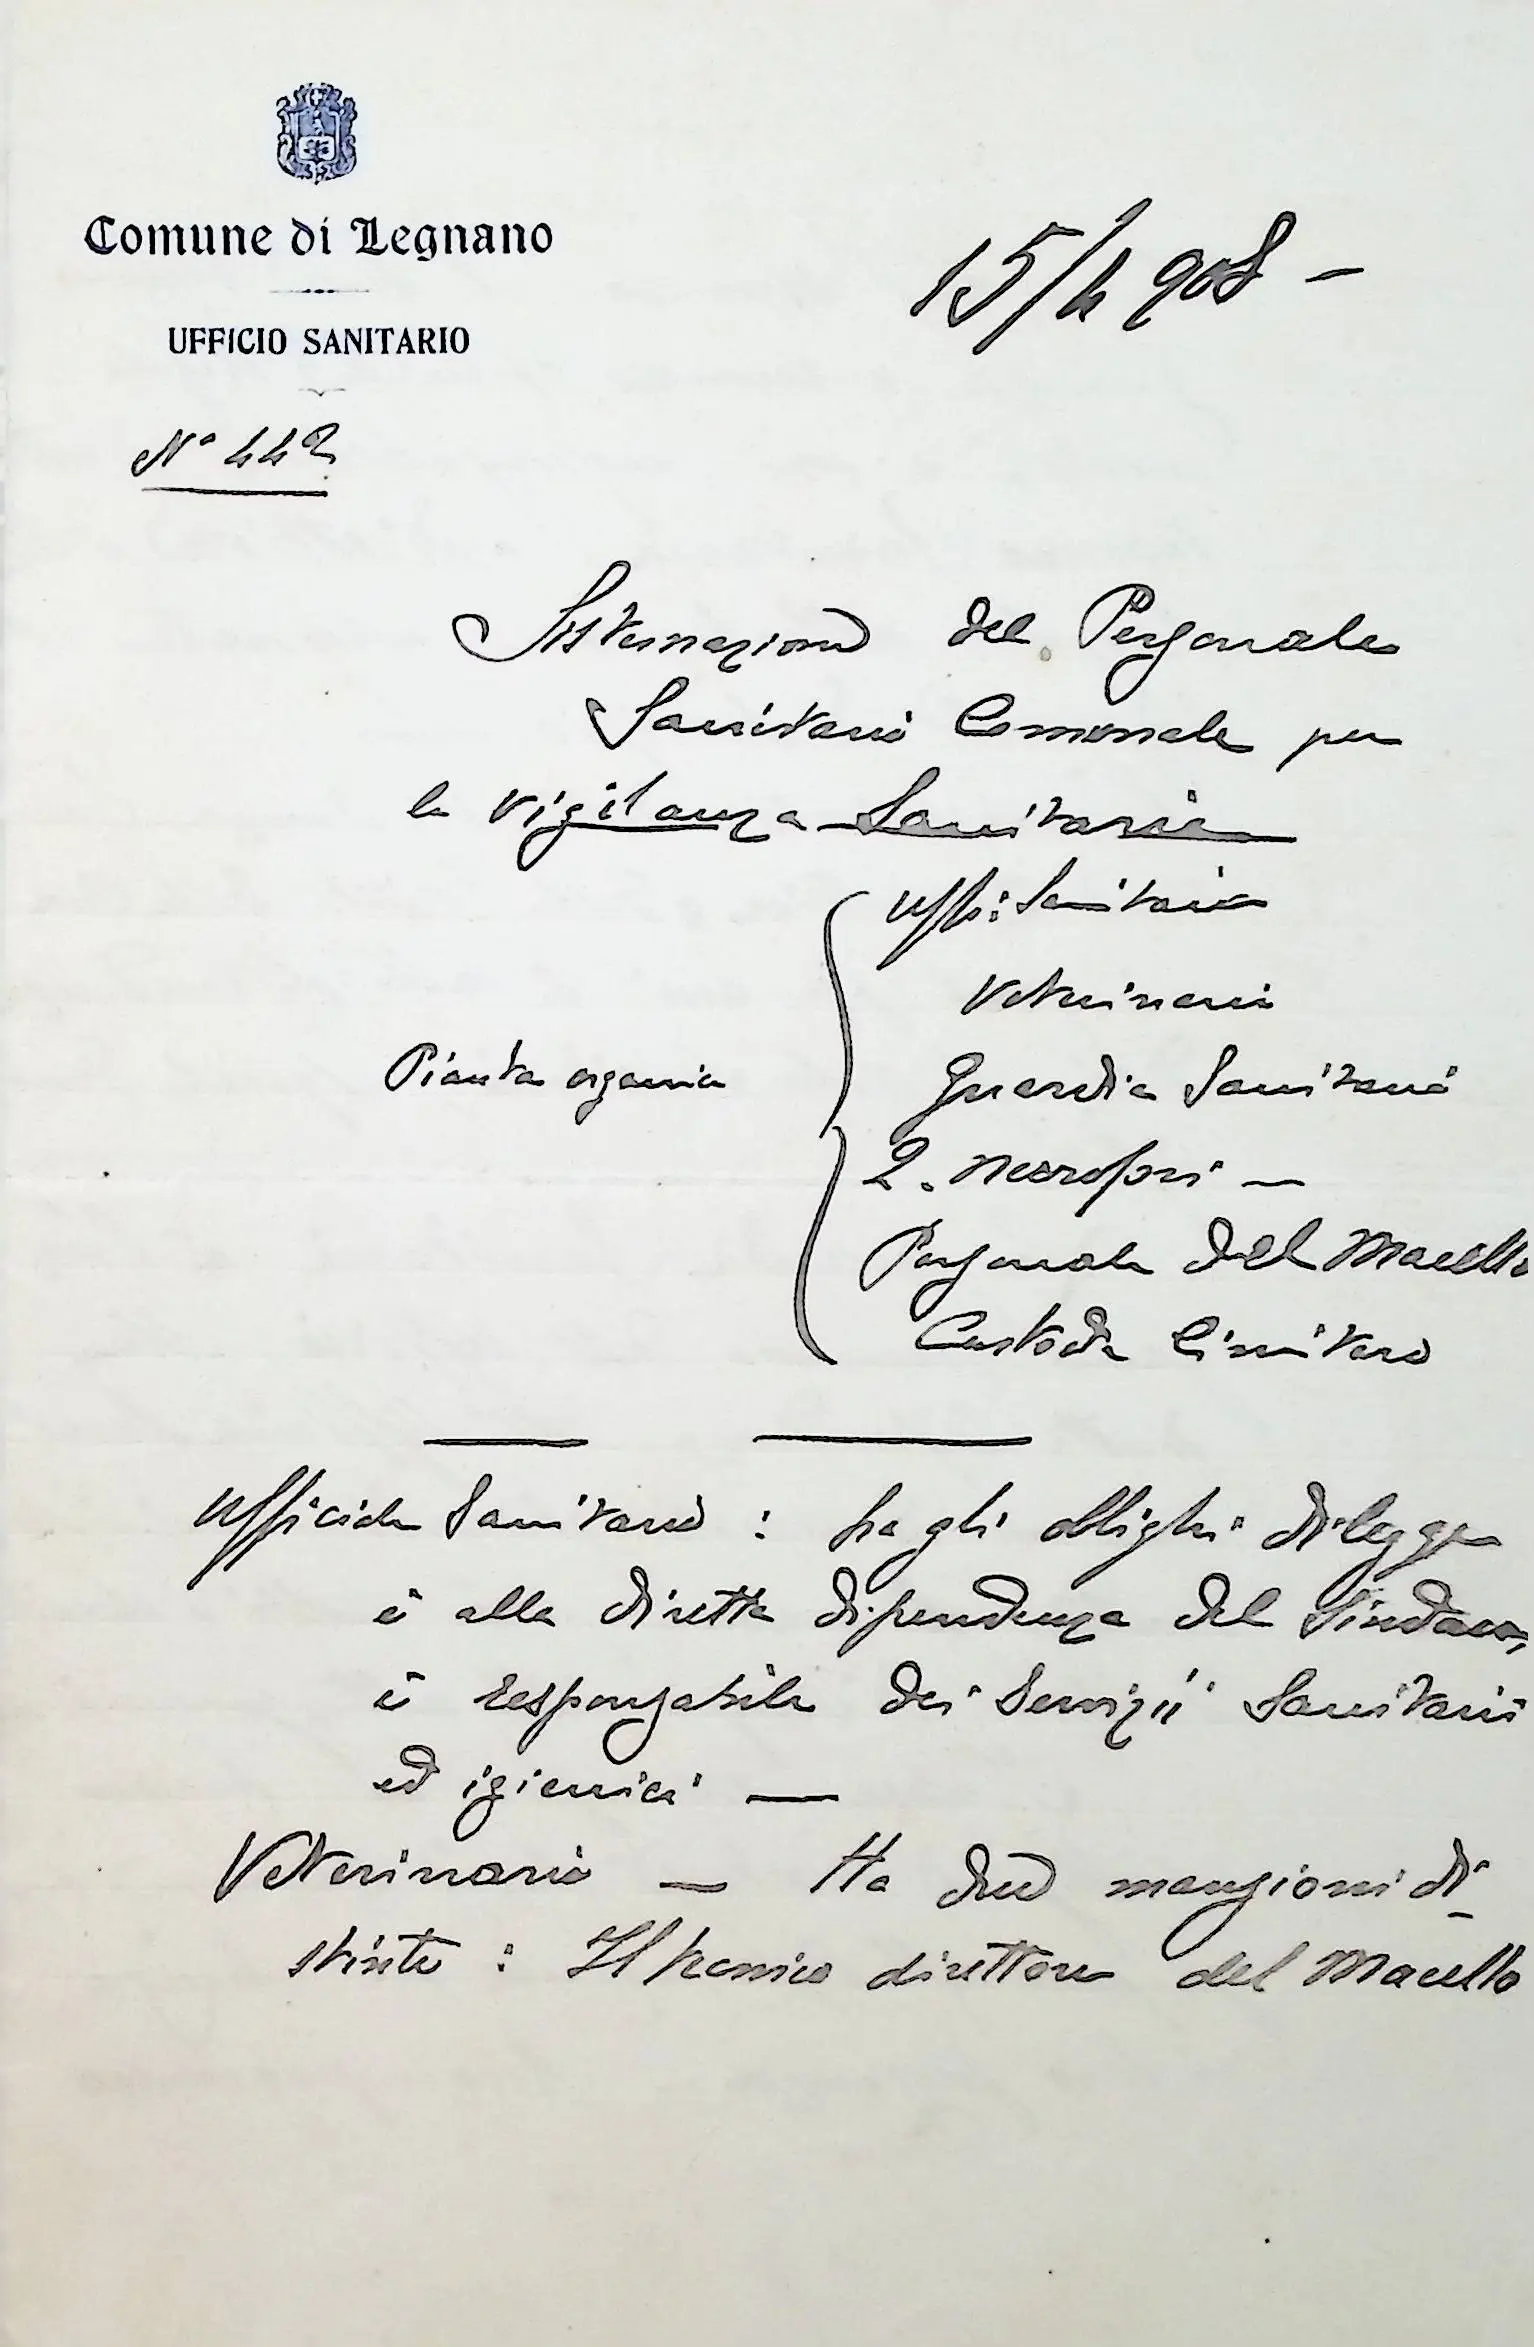 Comune di Legnano
15/4 908 -
UFFICIO SANITARIO
N° 442
Sistemazione del Personale
Sanitario Comunale per
la vigilanza Sanitaria
Uffi: Sanitario
Veterinario
Pianta organica
Guardia Sanitaria
2. necrofori —
Personale del Macello
Custode Cimitero
Ufficiale Sanitario : ha gli obblighi di legge
è alla diretta dipendenza del Sindaco,
è responsabile dei Servizii Sanitarii
ed igienici —
Veterinario — Ha due mansioni di-
stinte : Il tecnico direttore del Macello